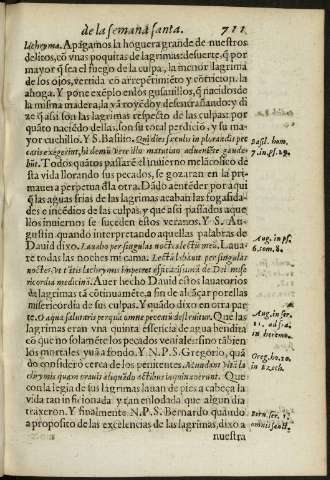 de la semana santa. 711
lachryma. Apagamos la hoguera grande de nuestros
delitos, cō vnas poquitas de lagrimas: desuerte, q̄ por
mayor q̄ sea el fuego de la culpa, la menor lagrima
de los ojos, vertida cō arrepētimiēto y cōtricion, la
ahoga. Y pone exēplo en los gusanillos, q̄ nacidos de
la misma madera, la vā royēdo y desentrañando: y di
ze q̄ asi son las lagrimas respecto de las culpas: por
quāto nacidā dellas, son su total perdiciō, y su ma
yor cuchillo. Y S. Basilio. Qui dies sæculi in plorandis pec
catis exegerint, hi
Basil. hom.
7. in ps. 29.
Todos quātos passarē el inuierno melācolico de
esta vida llorando sus pecados, se gozaran en la pri-
mauera perpetua dla otra. Dādo a entēder por aqui
q̄ las aguas frias de las lagrimas acaban las fogosida-
des e incēdios de las culpas, y que asi passados aque
llos inuiernos le suceden estos veranos. Y S. Au-
gustin quando interpretando aquellas palabras de
Dauid dixo. Lauabo per singulas noctes lectū meū. Laua-
Aug. in ps.
6. tom. 8.
re todas las noches mi cama.
noctes
ricordia medicinā. Auer hecho Dauid estos lauatorios
de lagrimas tā cōtinuamēte, a fin de alcāçar por ellas
misericordia de sus culpas. Y quādo dixo en otra par
te. O aqua salutaris per quā omne peccatū destruitur. Que las
Aug. in ser.
11. ad frā.
in heremo.
lagrimas eran vna quinta essencia de agua bendita
cō que no solamēte los pecados veniales: sino tābien
los mortales
Y N. P. S. Gregorio, quā
do consideró cerca de los penitentes.
Greg. ho. 10.
in Ezech.
chrymis quam prauis aliquādo actibus inquinauerunt. Que
con la legia de sus lagrimas lauan de pies a cabeça la
vida tan inficionada y tan enlodada que algun dia
traxeron. Y finalmente N. P. S. Bernardo quando
a proposito de las excelencias de las lagrimas, dixo a
Bern. ser.
nuestra